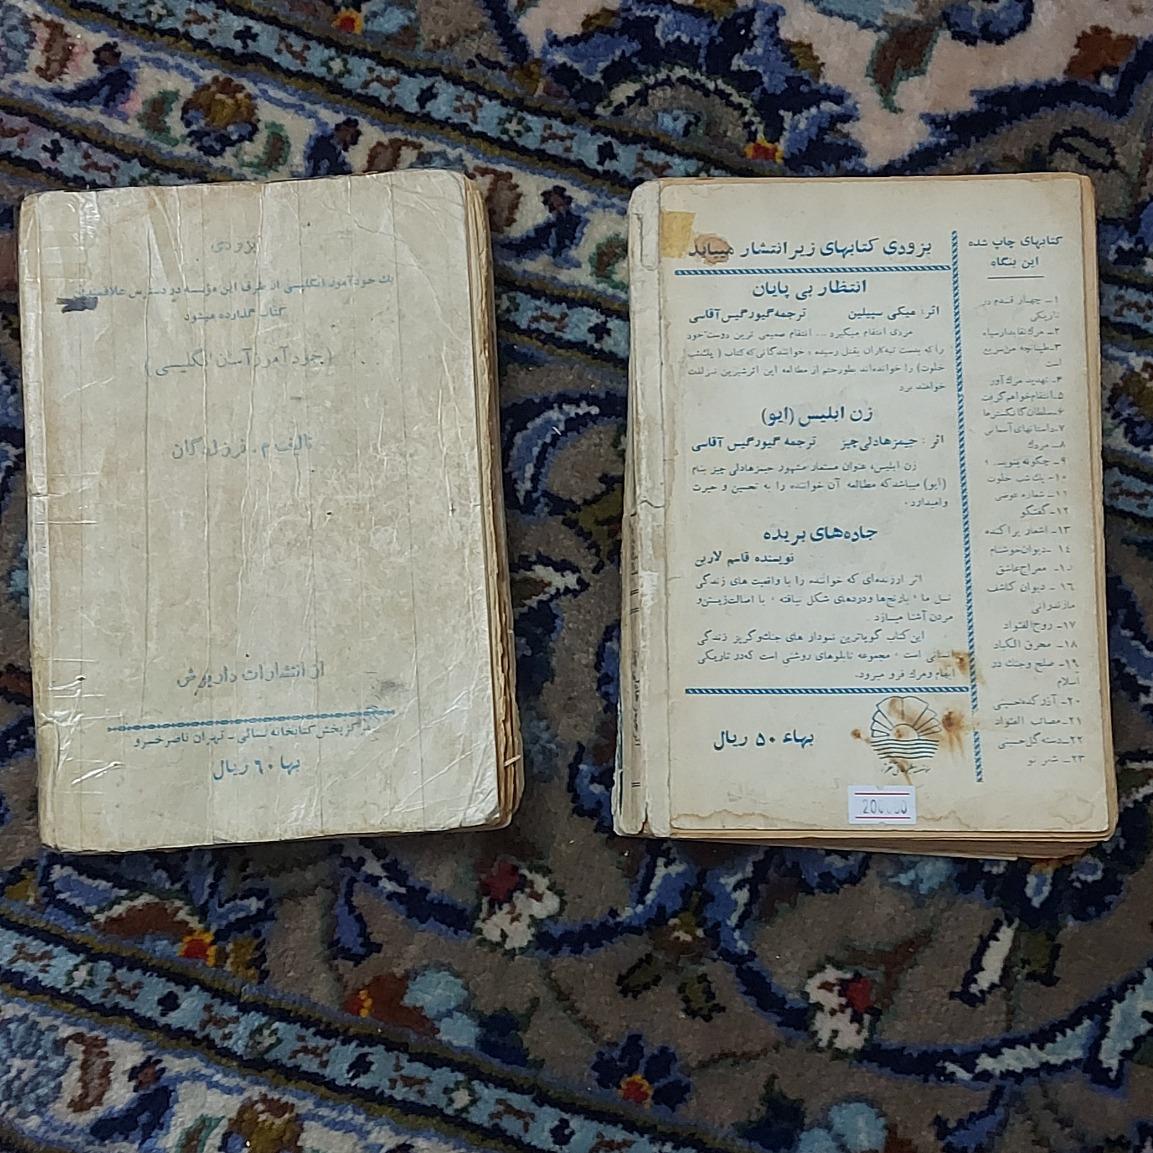 بزودی
یك خودآموز انگلیسی از طرف این مؤسسه در دسترس علاقمندان
کتاب گذارده میشود
(خودآموز آسان انگلیسی)
تالیف م.
از انتشارات داریوش
مرکز پخش کتابخانه ساتی - تهران ناصر خسرو
بها ۶۰ ریال
بزودی کتابهای زیر انتشار مییابد
انتظار بی پایان
اثر: میکی سپیلین ترجمه گیورگیس آقاسی
مردی انتقام میگیرد ... انتقام صمیمی ترین دوست خود
را که بدست تبه‌کاران بقتل رسیده ، خوانندگانی که کتاب ( یك شب
خلوت) را خوانده‌اند بطور حتم از مطالعه این اثر شیرین نیز لذت
خواهند برد
زن ابلیس (ایو)
اثر : جیمز هادلی چیز ترجمه گیورگیس آقاسی
زن ابلیس، عنوان مستعار مشهور جیمز هادلی چیز بنام
(ایو) میباشد که مطالعه آن خواننده را به تحسین و حیرت
وامیدارد .
جاده‌های بریده
نویسنده قاسم لاربن
اثر ارزنده‌ای که خواننده را با واقعیت های زندگی
نسل ما ، بارنج‌ها ودردهای شکل نیافته ، با اصالت زیستن و
مردن آشنا میسازد .
این کتاب گویاترین نمودار های جنك و گریز زندگی
انسانی است ، مجموعه تابلوهای روشنی است که در تاریکی
ابهام ومرك فرو میرود.
بهاء ۵۰ ریال
کتابهای چاپ شده
این بنگاه
۱ــ چهار قدم در
تاریکی
۲ــ مرك نقابدار سیاه
۳ــ طپانچه من سریع
است
۴ــ تهدید مرك آور
۵ــ انتقام خواهم گرفت
۶ــ سلطان گانگسترها
۷ــ داستانهای آسمانی
۸ــ مردك
۹ــ چگونه بنویسد ؟
۱۰ــ یك شب خلوت
۱۱ــ شماره عوضی
۱۲ــ گفتگو
۱۳ــ اشعار پراکنده
۱۴ ــ دیوان خوشنام
۱۵ــ معراج عاشق
۱۶ــ دیوان کاشف
مازندرانی
۱۷ــ روح الفئواد
۱۸ــ محرق الکباد
۱۹ــ صلح و جنك در
اسلام
۲۰ــ آذر کده حسینی
۲۱ــ مصائب الفئواد
۲۲ــ دسته گل حسینی
۲۳ــ شعر نو